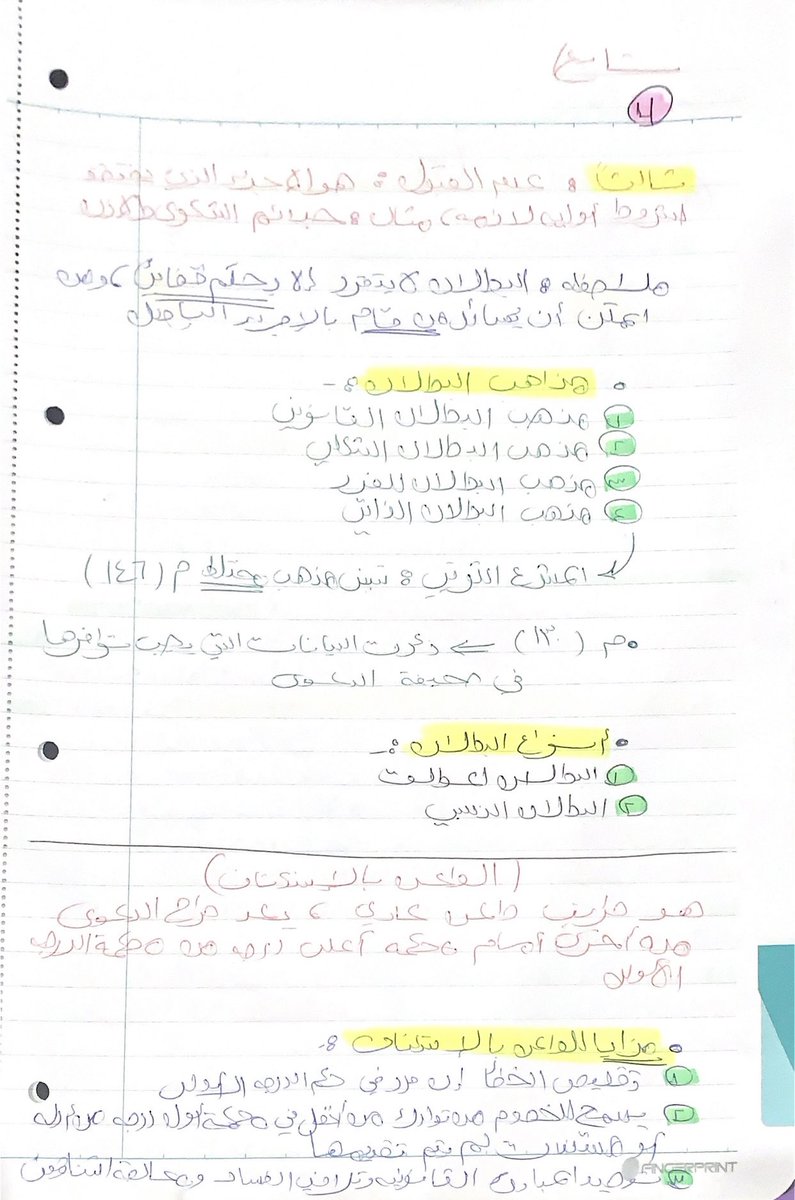 تابع
٤
ثالثاً : عدم القبول : هو الإجراء الذي يفتقد
لشروط أولية لازمة، مثال : جرائم الشكوى والإذن
ملاحظة : البطلان لا يتقرر إلا بحكم قضائي، ومن
الممكن أن يسائل من قام بالإجراء الباطل
• مذاهب البطلان :-
١ مذهب البطلان القانوني
٢ مذهب البطلان الشكلي
٣ مذهب البطلان للضرر
٤ مذهب البطلان الذاتي
المشرع الكويتي : تبنى مذهب مختلط م (١٤٦)
• م (١٣٠) ذكرت البيانات التي يجب توافرها
في صحيفة الدعوى
• أنواع البطلان :-
١ البطلان المطلق
٢ البطلان النسبي
(الطعن بالاستئناف)
هو طريق طعن عادي، يعد طرح الدعوى
من أخرى أمام محكمة أعلى درجة من محكمة الدرجة
الأولى
• مزايا الطعن بالاستئناف :-
١ تقليص الخطأ إن ورد في حكم الدرجة الأولى
٢ يسمح للخصوم من تدارك من أغفل في محكمة أول درجة من أدلة
أو مستندات لم يتم تقديمها
٣ توحيد المبادئ القانونية وتلافي الفساد ومخالفة القانون
FINGERPRINT